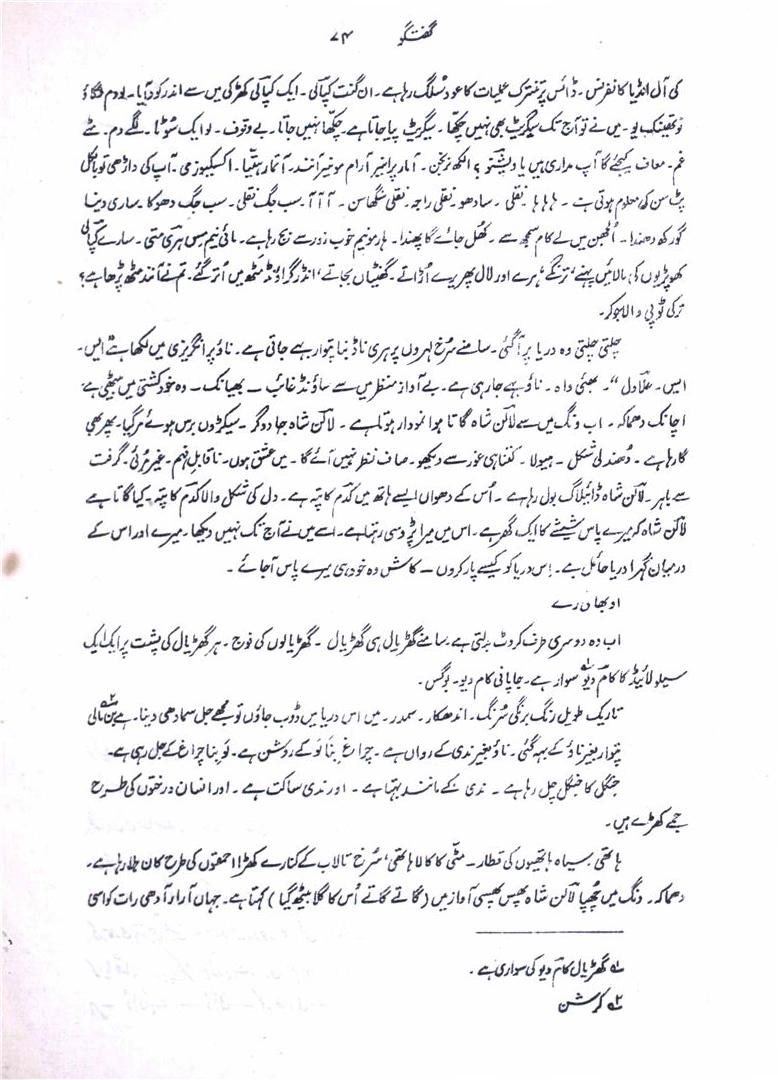 گفتگو ۷۴
کی آل انڈیا کانفرنس۔ ڈائس پر تنترک عملیات کا عود سُلگ رہا ہے۔ ان گنت کپالی۔ ایک کپالی کھڑکی میں سے اندر کود آیا۔ لو دم لگاؤ
نو تھینک یو۔ میں نے تو آج تک سیگریٹ بھی نہیں چکھا۔ سیگریٹ پیا جاتا ہے۔ چکھا نہیں جاتا۔ بے وقوف۔ لو ایک سُوٹا۔ لگے دم۔ مٹے
غم۔ معاف کیجئے گا آپ مداری ہیں یا ویشنو؟ الکھ نرنجن۔ آمار پرانیر آرام مونیر آنند۔ آتمار شانتی۔ اکسکیوزمی۔ آپ کی داڑھی تو بالکل
پٹ سن کی معلوم ہوتی ہے۔ ہا ہا ہا نقلی۔ سادھو نقلی راجہ نقلی سنگھاسن۔ آ آ آ۔ سب جگ نقلی۔ سب جگ دھوکا۔ ساری دنیا
گورکھ دھندا۔ اُلجھن میں لے کام سمجھ سے۔ کُھل جائے گا پھندا۔ ہارمونیم خوب زور سے بج رہا ہے۔ مائی نیم مس ہری متی۔ سارے کپالی
کھوپڑیوں کی مالائیں پہنے، ترنگے، ہرے اور لال پھریرے اُڑاتے۔ گھنٹیاں بجاتے، انڈر گراؤنڈ مٹھ میں اُتر گئے۔ تم نے آنند مٹھ پڑھا ہے؟
ترکی ٹوپی والا جوکر۔
چلتی چلتی وہ دریا پر آگئی۔ سامنے سُرخ لہروں پر ہری ناؤ بنا پتوار بہے جاتی ہے۔ ناؤ پر انگریزی میں لکھا ہے "ایس۔
ایس۔ علاول"۔ بھئی واہ۔ ناؤ بہے جا رہی ہے۔ بے آواز منظر میں سے ساؤنڈ غائب — بھیانک — وہ خود کشتی میں بیٹھی ہے
اچانک دھماکہ۔ اب ونگ میں سے لاکن شاہ گاتا ہوا نمودار ہوتا ہے۔ لاکن شاہ جادوگر۔ سیکڑوں برس ہوئے مر گیا۔ پھر بھی
گا رہا ہے۔ دُھندلی شکل۔ ہیولا۔ کتنا ہی غور سے دیکھو۔ صاف نظر نہیں آئے گا۔ میں عشق ہوں۔ ناقابلِ فہم۔ غیر مرئی۔ گرفت
سے باہر۔ لاکن شاہ ڈائیلاگ بول رہا ہے۔ اُس کے دھواں ایسے ہاتھ میں کدَم کا پتہ ہے۔ دل کی شکل والا کدَم کا پتہ۔ کیا گاتا ہے
لاکن شاہ کہ میرے پاس شیشے کا ایک گھر ہے۔ اس میں میرا پڑوسی رہتا ہے۔ اسے میں نے آج تک نہیں دیکھا۔ میرے اور اس کے
درمیان گہرا دریا حائل ہے۔ اِس دریا کو کیسے پار کروں — کاش وہ خود ہی میرے پاس آجائے۔
او بھان رے
اب وہ دوسری طرف کروٹ بدلتی ہے سامنے گھڑیال ہی گھڑیال۔ گھڑیالوں کی فوج۔ ہر گھڑیال کی پشت پر ایک ایک
سیلولائیڈ کا کام دیو۱ سوار ہے۔ جاپانی کام دیو۔ بوگس۔
تاریک طویل رنگ برنگی سُرنگ۔ اندھکار۔ سمدر۔ میں اس دریا میں ڈوب جاؤں تو مجھے جل سمادھی دینا۔ ہے بن مالی۲
پتوار بغیر ناؤ کے بہہ گئی۔ ناؤ بغیر ندی کے رواں ہے۔ چراغ بنا لَو کے روشن ہے۔ لَو بنا چراغ کے جل رہی ہے۔
جنگل کا جنگل چل رہا ہے۔ ندی کے مانند بہتا ہے۔ اور ندی ساکت ہے۔ اور انسان درختوں کی طرح
جمے کھڑے ہیں۔
ہاتھی سیاہ ہاتھیوں کی قطار۔ مٹّی کا کالا ہاتھی، سُرخ تالاب کے کنارے کھڑا احمقوں کی طرح کان ہلا رہا ہے۔
دھماکہ۔ ونگ میں چُھپا لاکن شاہ پھیس پھیسی آواز میں (گاتے گاتے اُس کا گلا بیٹھ گیا) کہتا ہے۔ جہاں آرا۔ آدھی رات کو اسی
۱ گھڑیال کام دیو کی سواری ہے۔
۲ کرشن